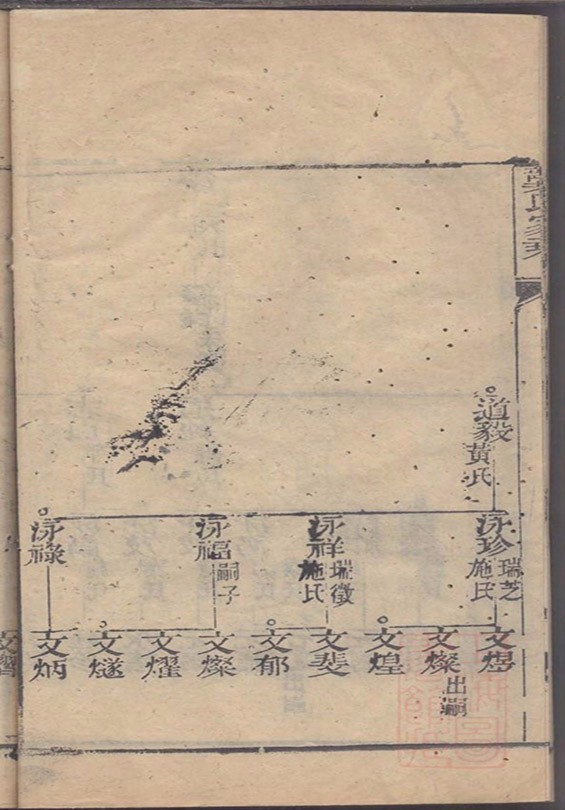 道毅
黃氏
泳珍
瑞芝
施氏
泳祥
瑞徵
施氏
泳福
嗣子
泳祿
文煜
文燦
出嗣
文煌
文斐
文郁
文燦
文燿
文燧
文炳